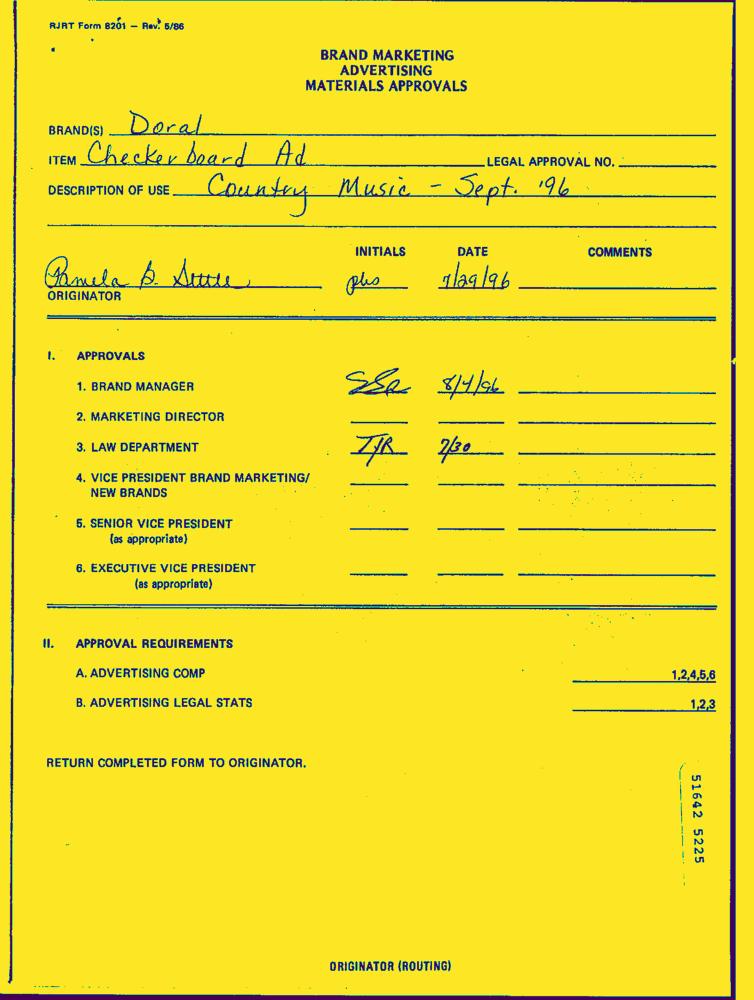 RJRT Form 8201 — Rev. 5/86
BRAND MARKETING
ADVERTISING
MATERIALS APPROVALS
BRAND(S) Doral
ITEM Checkerboard Ad LEGAL APPROVAL NO.
DESCRIPTION OF USE Country Music - Sept. '96
INITIALS DATE COMMENTS
Pamela B. pbs 7/29/96
ORIGINATOR
I. APPROVALS
1. BRAND MANAGER 8/4/96
2. MARKETING DIRECTOR
3. LAW DEPARTMENT TJR 7/30
4. VICE PRESIDENT BRAND MARKETING/
NEW BRANDS
5. SENIOR VICE PRESIDENT
(as appropriate)
6. EXECUTIVE VICE PRESIDENT
(as appropriate)
II. APPROVAL REQUIREMENTS
A. ADVERTISING COMP 1,2,4,5,6
B. ADVERTISING LEGAL STATS 1,2,3
RETURN COMPLETED FORM TO ORIGINATOR.
51642 5225
ORIGINATOR (ROUTING)